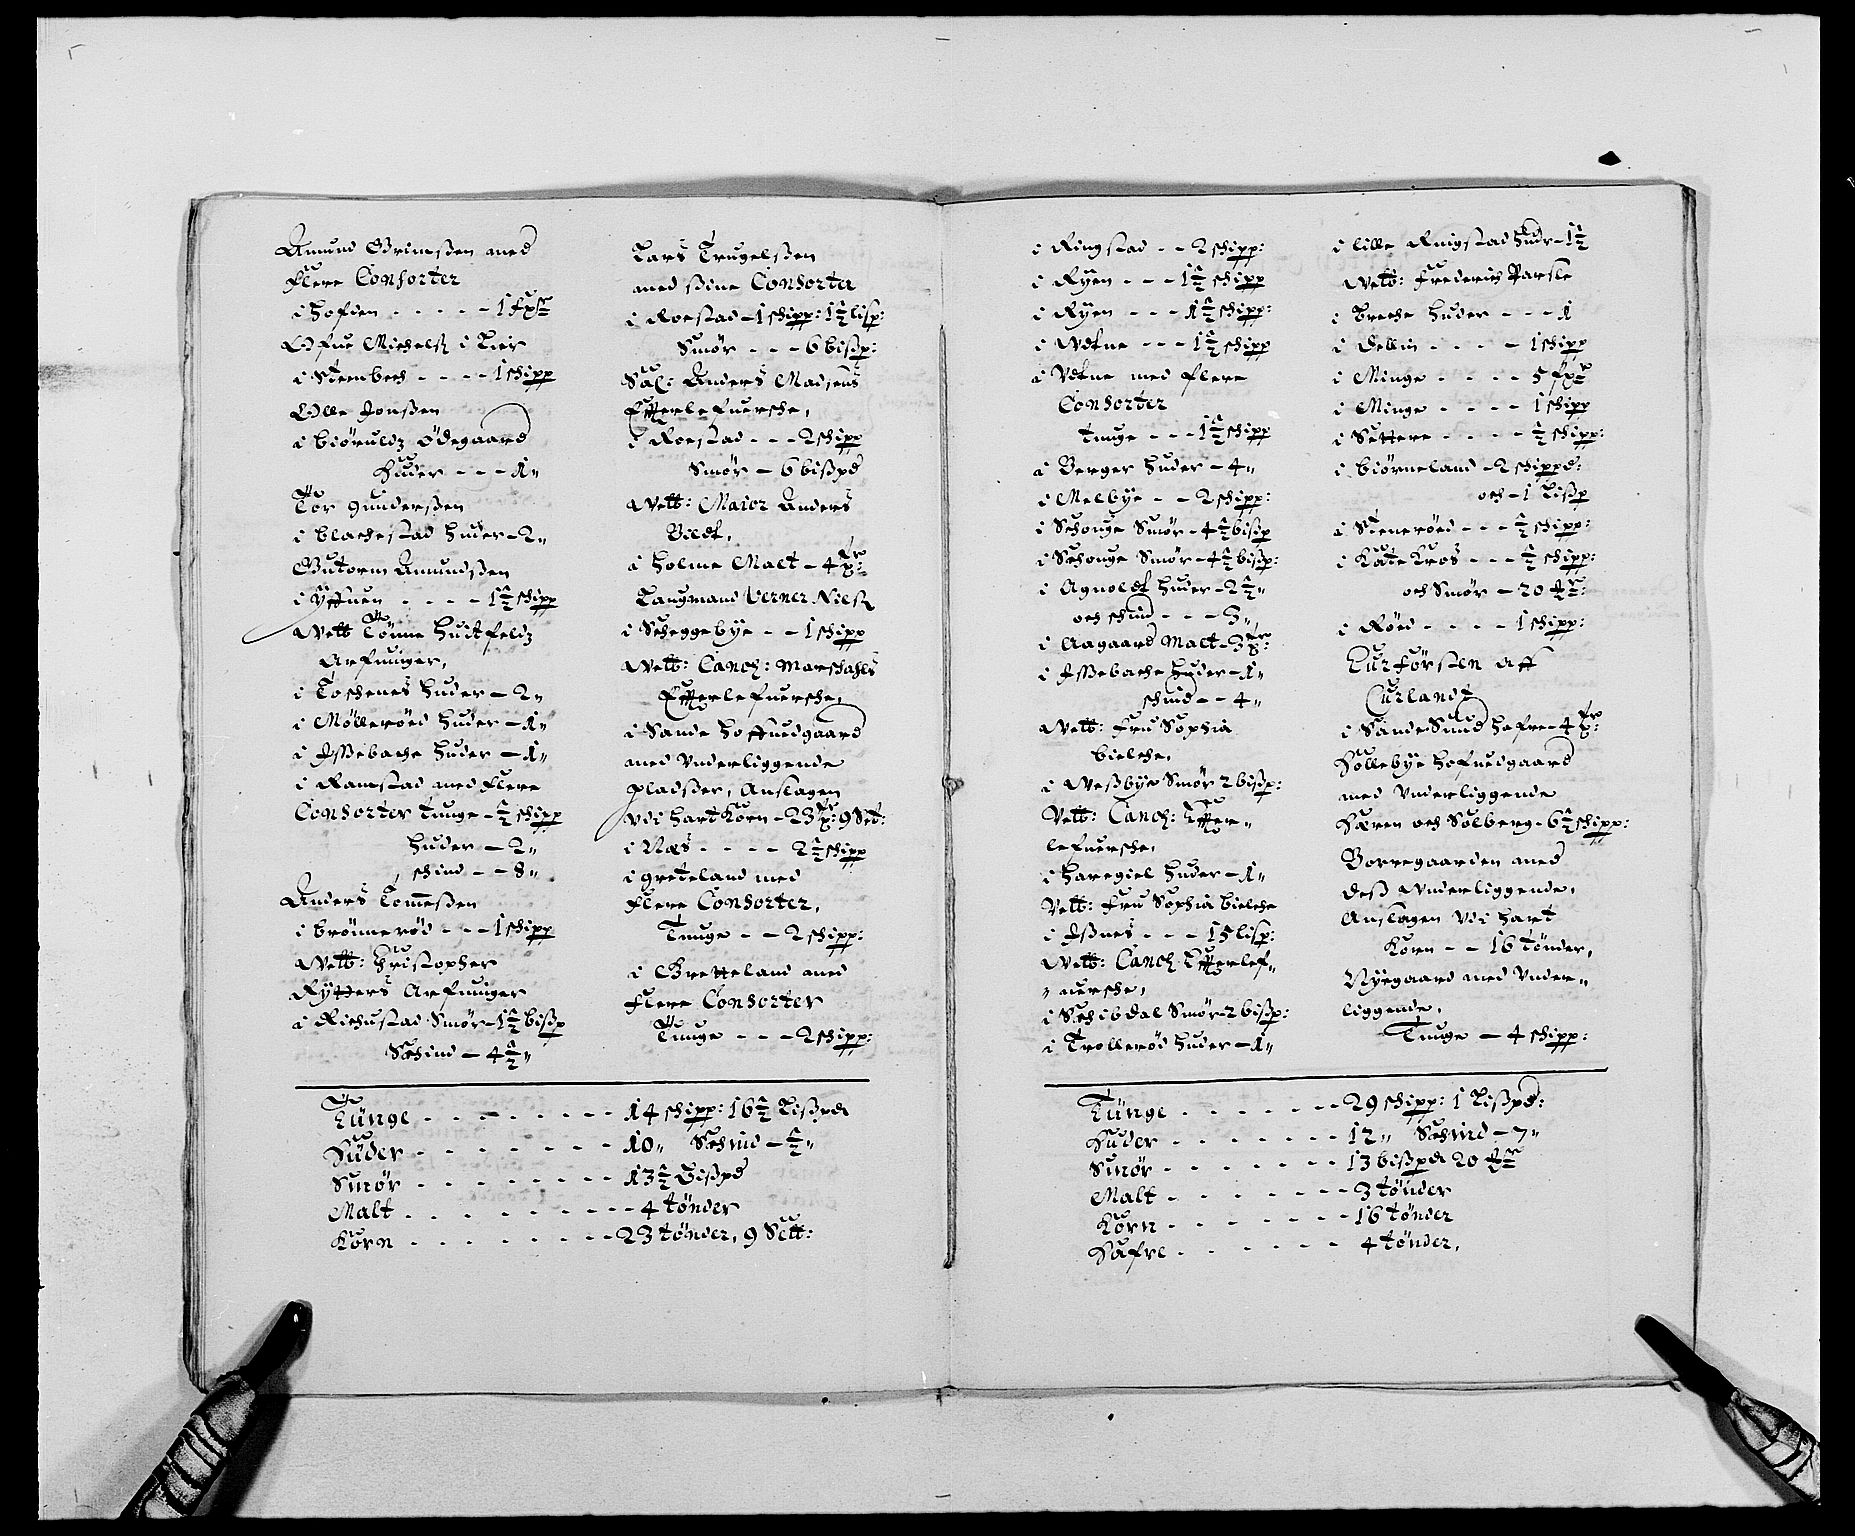 Amund Grimsßen med
flere Consorter
i Hofden - - - - - 1 fx
Olfue Michelß i Lier
i Steenbech - - - - 1 schipp
Olle Jonßen
i biøruldz Ödegaard
Huder - - - 1„
Tor gunderßen
i blachestad Huder - 2„
Gutorm Amundßen
i Yffuen - - - - - 1½ schipp
Welb Tönne Huitfeldz
Arfuinger,
i Toschenes Huder - 2„
i Mölleröed Huder - 1„
i Assebache Huder - 1„
i Ramstad med flere
Consorter Tunge - ½ schipp
Huder - 2„
schind - - 8„
Anders Tomeßen
i brönneröd - - - 1 schipp
Welb: Christopher
Rytters Arfuinger
i Richustad Smör - 1½ bißp
Schind - 4½„
Lars Trugelßen
med ßine Consorter
i Roestad - 1 schipp: 1½ lisp:
Smör - - - 6 bißp:
Sal: Anders Madsens
Efterlefuersche,
i Roestad - - - 2 schipp
Smör - 6 bißpd
Welb: Maior Anders
Bildt,
i Holme Malt - 4
Laugmand Verner Nielß
i Scheggebye - - 1 schipp
Welb: Cancl: Marschalls
Efterlefuersche,
i Sande Hoffuedgaard
med Vnderliggende
pladßer, Anslagen
vdi Hart Korn - 23 : 9 Set:
i Næs - - - - 2½ schipp
i Greteland med
flere Consorter,
Tunge - - 2 schipp:
i Gretteland med
flere Consorter
Tunge - - - 2 schipp:
Tünge - - - - - - 14 schipp: 16½ Lißpd
Hüder - - - - - - 10„ Schind - ½„
Smör - - - - - - - 13½ Bißpd
Malt - - - - - - - - 4 tönder
Korn - - - - - - - - 23 tönder, 9 Sett:
i Ringstad - - 2 schipp:
i Ryen - - - 1½ schipp
i Ryen - - - 1½ schipp:
i Wdtne - - - 1½ schipp
i Vdtne med flere
Consorter
Tunge - - - 1½ schipp
i Berger Huder - 4„
i Melbye - - 2 schipp:
i Schonge Smör - 4½ bißp
i Schonge Smör - 4½ bißp:
i Agnoldt Huder - 2½„
och schind - - - 3„
i Aagaard Malt - 3
i Assebache Huder - 1„
schind - - 4„
Welb: Fru Sophia
bielche,
i Weßbye Smör 2 bißp:
Velb: Cancl: Effter-
lefuersche,
i Haregiel Huder - 1„
Velb: Fru Sophia bielche
i Aßnes - - - 15 lisp:
Welb: Cancl Effterlef„
„uersche,
i Schibdal Smör - 2 bißp:
i Trolleröd Huder - 1„
i lille Ringstad Hud - 1½
Welb: Frederich Parsle
i breche Huder - - - 1
i Dellin - - - - 1 schipp
i Minge - - - - 5 fx
i Minge - - - - 1 schipp
i Settere - - - - ½ schipp:
i biörneland - 2 schippd:
och - 1 Lißp
i Stenerøed - - - ½ schipp:
i Kate Kros - - - ½ schipp:
och Smör - 20
i Röed - - - - 1 schipp:
Curförsten aff
Curlandt
i SandeSund Hafre - 4
Sollebye Hofuedgaard
med Vnderliggende
Færen och Solberg - 6½ schipp:
Borregaarden med
deß Vnderliggende,
Anslagen Vdi Hart
Korn - - 16 tönder,
Nyegaard med Vnder„
liggende,
Tunge - 4 schipp:
Tünge - - - - - - 29 schipp: 1 Lißpd:
Huder - - - - - - 12„ Schind - 7„
Smör - - - - - - - 13 bißpd 20
Malt - - - - - - - 3 tönder
Korn - - - - - - - 16 tönder
Hafre - - - - - - 4 tönder,